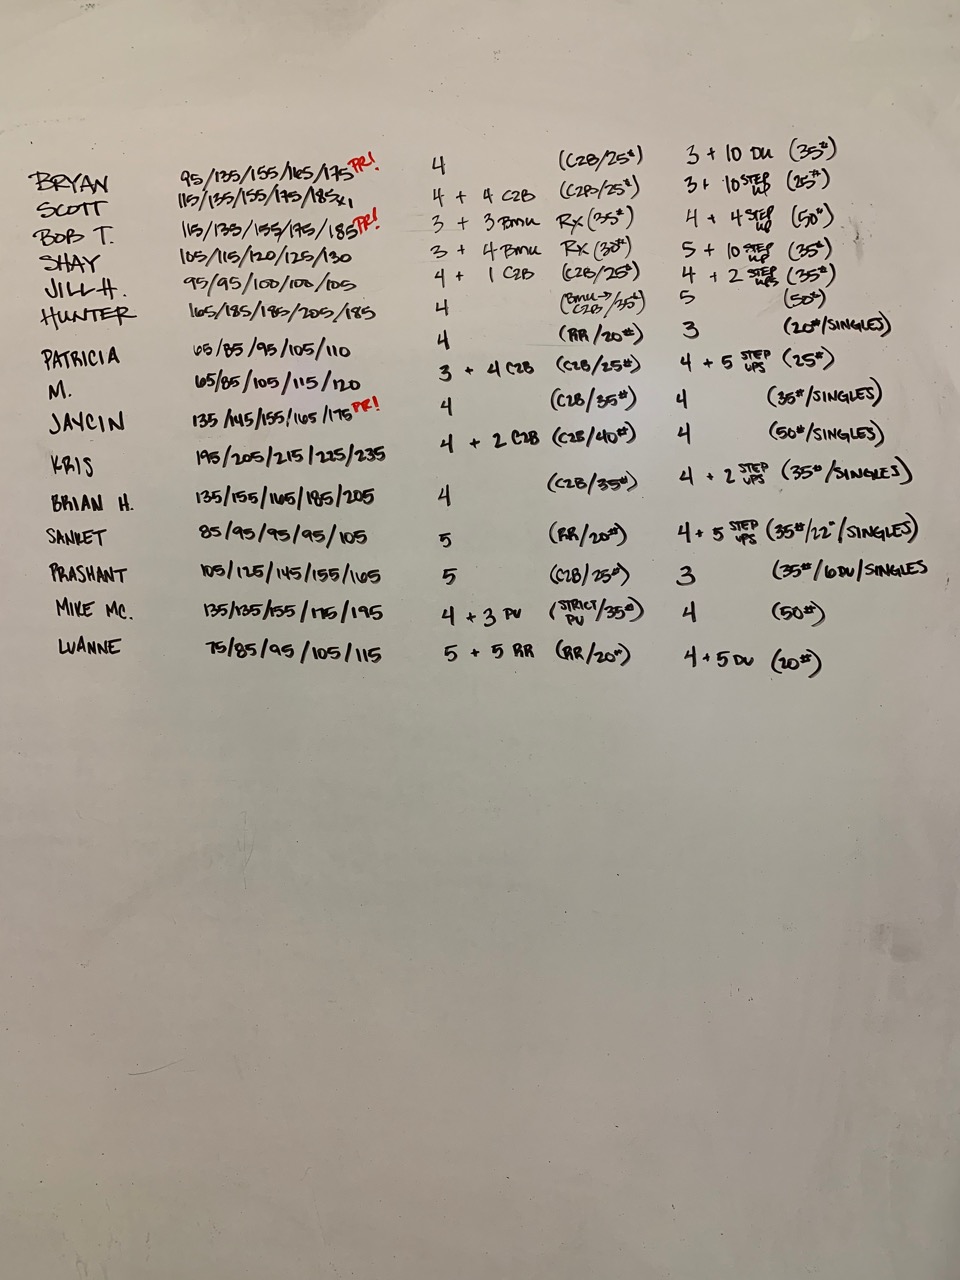 BRYAN 95/135/155/165/175 PR! 4 (C2B/25#) 3 + 10 DU (35#)
SCOTT 115/135/155/175/185x1 4 + 4 C2B (C2B/25#) 3 + 10 STEP UP (25#)
BOB T. 115/135/155/175/185 PR! 3 + 3 BMU RX (35#) 4 + 4 STEP UP (50#)
SHAY 105/115/120/125/130 3 + 4 BMU RX (30#) 5 + 10 STEP UP (35#)
JILL H. 95/95/100/100/105 4 + 1 C2B (C2B/25#) 4 + 2 STEP UPS (35#)
HUNTER 165/185/195/205/185 4 (BMU→C2B/35#) 5 (50#)
PATRICIA 65/85/95/105/110 4 (RR/20#) 3 (20#/SINGLES)
M. 65/85/105/115/120 3 + 4 C2B (C2B/25#) 4 + 5 STEP UPS (25#)
JAYCIN 135/145/155/165/175 PR! 4 (C2B/35#) 4 (35#/SINGLES)
KRIS 195/205/215/225/235 4 + 2 C2B (C2B/40#) 4 (50#/SINGLES)
BRIAN H. 135/155/165/185/205 4 (C2B/35#) 4 + 2 STEP UPS (35#/SINGLES)
SANKET 85/95/95/95/105 5 (RR/20#) 4 + 5 STEP UPS (35#/22"/SINGLES)
PRASHANT 105/125/145/155/165 5 (C2B/25#) 3 (35#/6DU/SINGLES
MIKE MC. 135/135/155/175/195 4 + 3 PU (STRICT PU/35#) 4 (50#)
LUANNE 75/85/95/105/115 5 + 5 RR (RR/20#) 4 + 5 DU (20#)